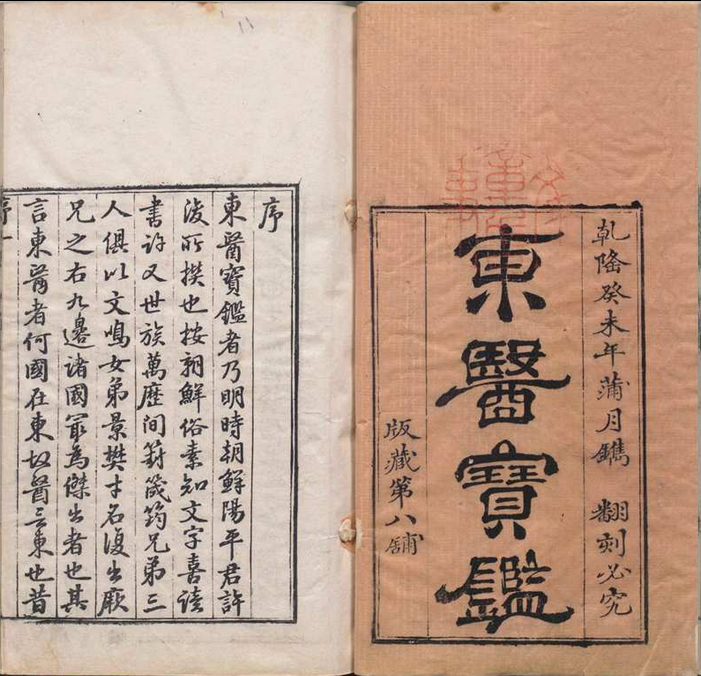 乾隆癸未年蒲月鐫 翻刻必究
東醫寶鑑
版藏第八舖
序
東醫寶鑑者乃明時朝鮮陽平君許
浚所撰也按朝鮮俗素知文字喜讀
書許又世族萬歷間葑筬筠兄弟三
人俱以文鳴女弟景樊才名復出厥
兄之右九邊諸國最為傑出者也其
言東醫者何國在東故醫言東也昔